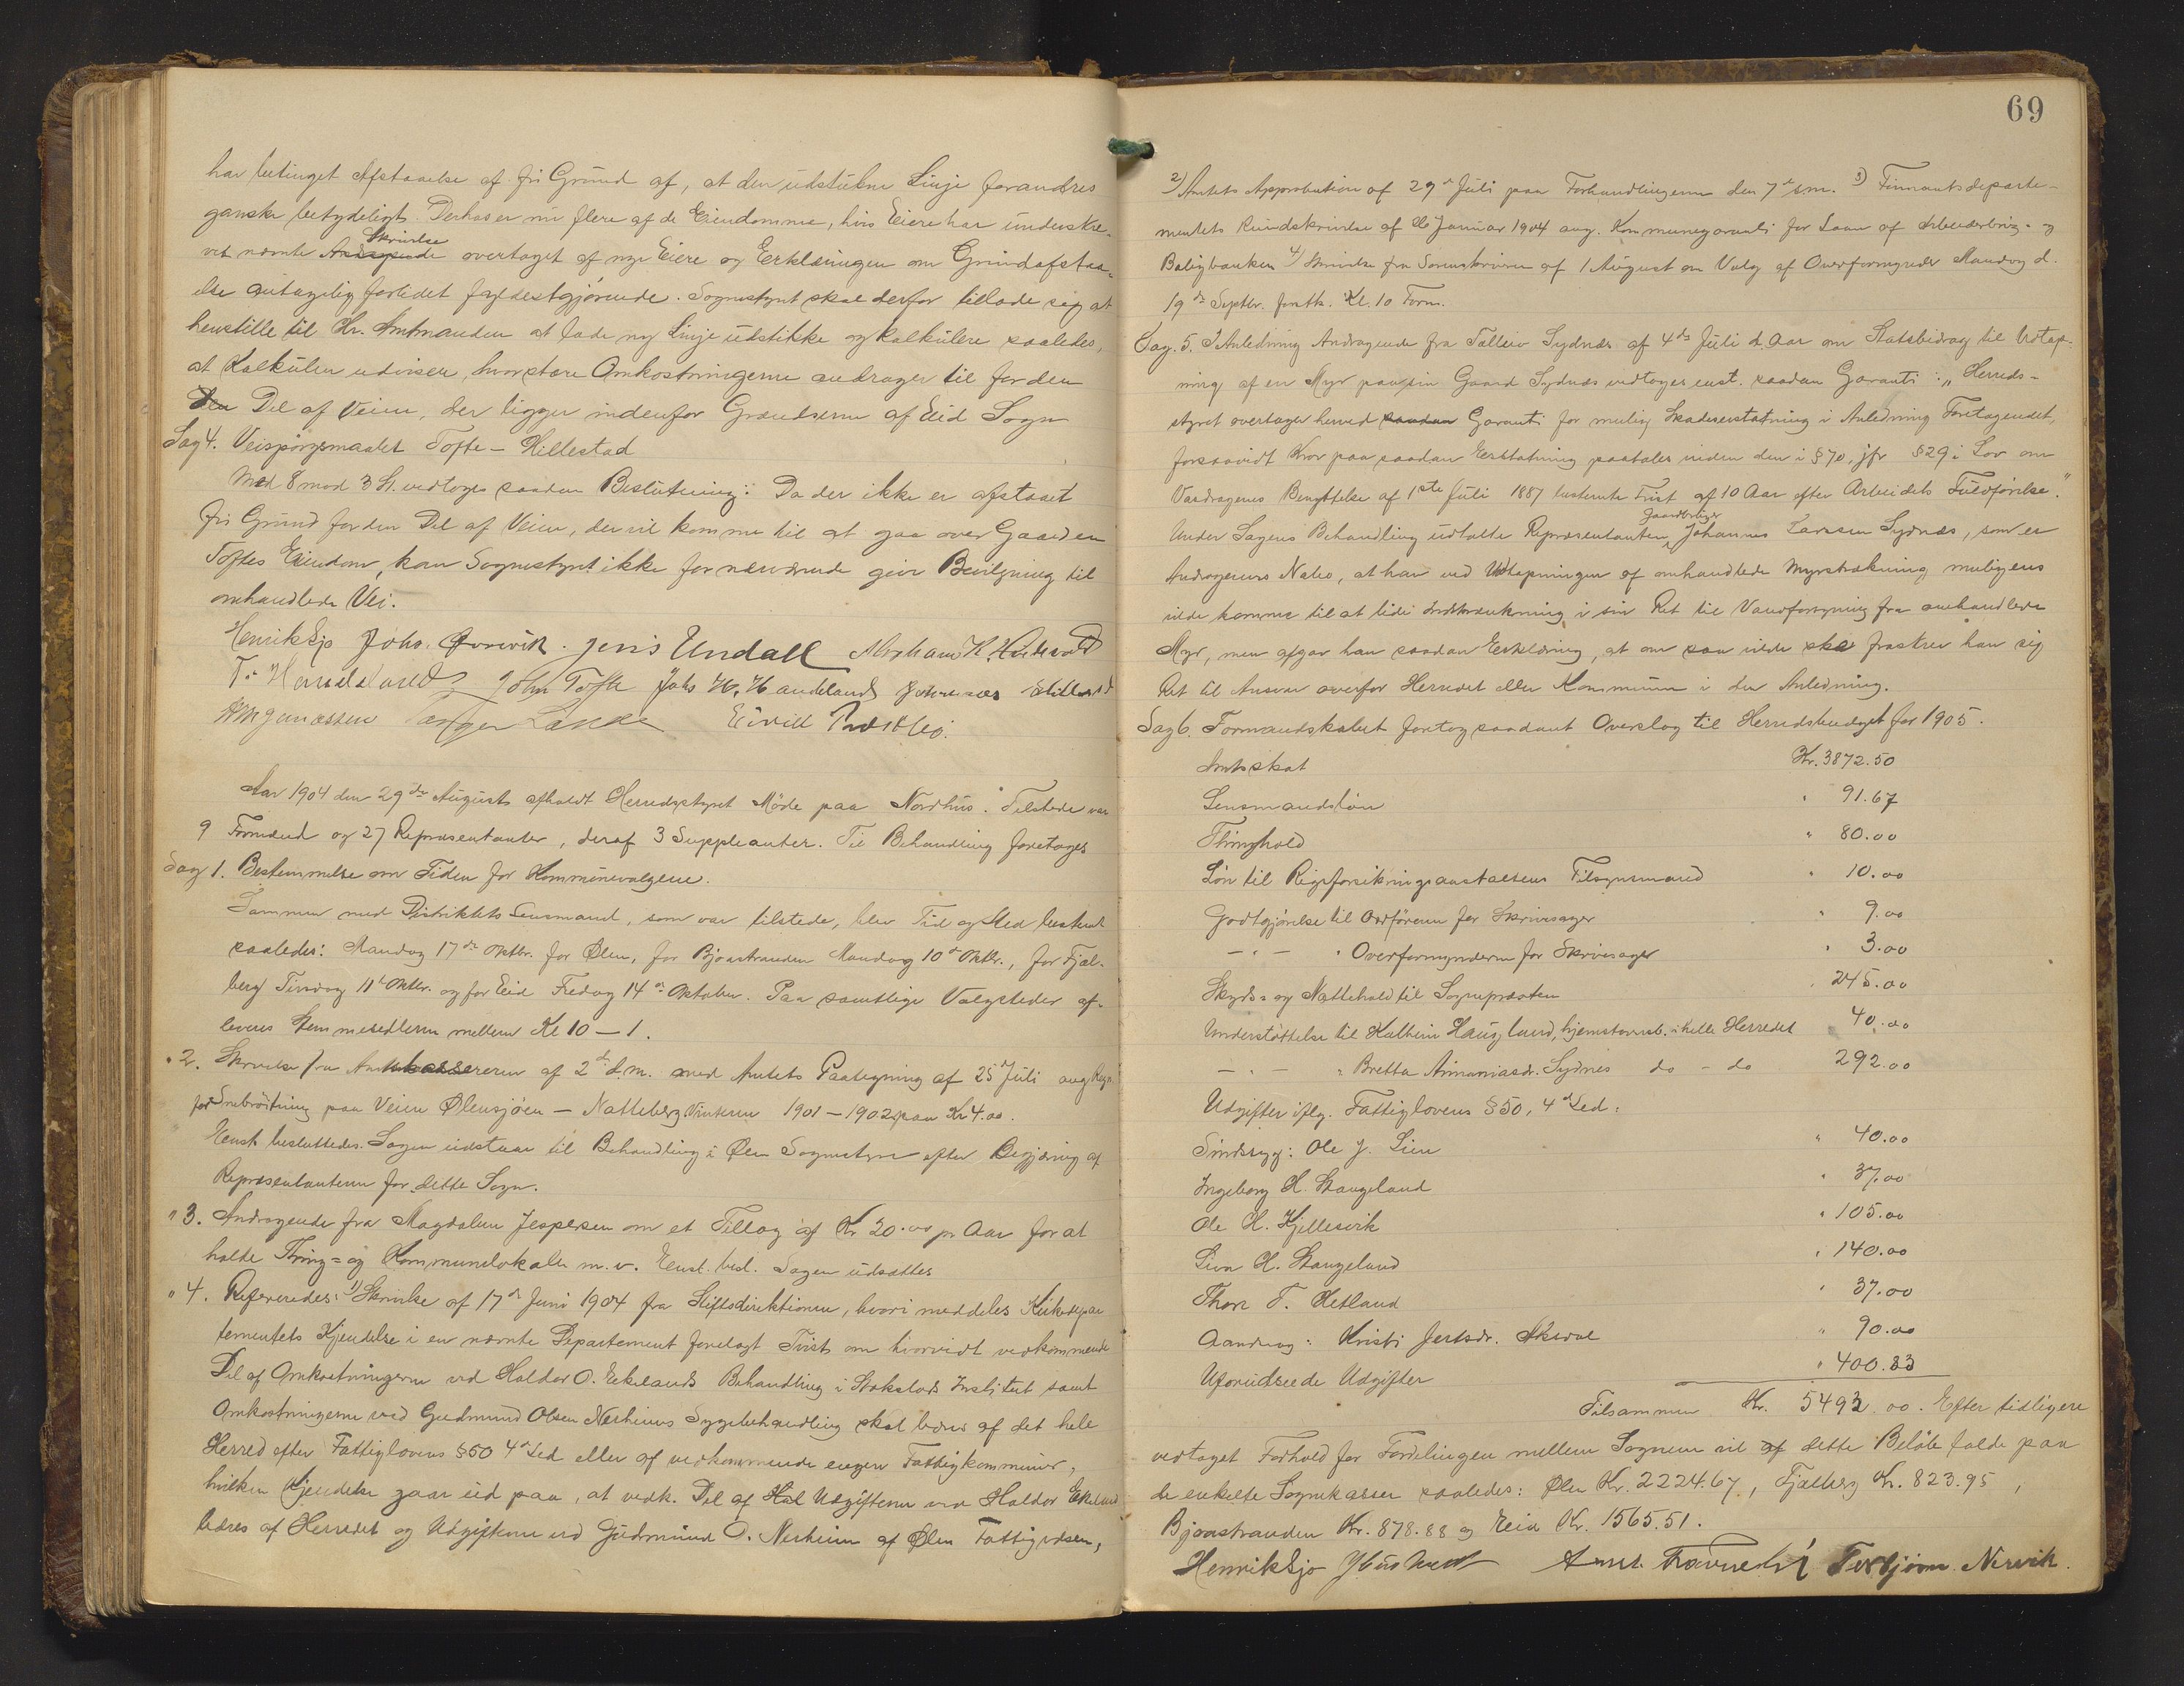 har betinget Afstaaelse af fri Grund af, at den udstukne Linje forandres
ganske betydeligt. Derhos er nu flere af de Eiendomme, hvis Eiere har underskre-
vet nævnte Skrivelse overtaget af nye Eiere og Erklæringen om Grundafstaa-
else antagelig forledet fyldestgjørende. Sognestyret skal derfor tillade sig at
henstille til Hr. Amtmanden at lade ny Linje udstikke og kalkulere saaledes,
at Kalkulen udviser, hvor store Omkostningerne andrager til for den
Del af Veien, der ligger indenfor Grændserne af Eid Sogn
Sag 4. Veispørgsmaalet Tofte - Hillestad
Med 8 mod 3 St. vedtoges saadan Beslutning: Da der ikke er afstaaet
fri Grund for den Del af Veien, der vil komme til at gaa over Gaarden
Toftes Eiendom, kan Sognestyret ikke for nærværende give Bevilgning til
omhandlede Vei.
Henrik Sjo Johs. Jens Undall Abraham K.
T. John Tofte Johs H. Haudeland
Eivill
Aar 1904 den 29de August afholdt Herredsstyret Møde paa Nordhus. Tilstede var
9 Formænd og 27 Repræsentanter, deraf 3 Suppleanter. Til Behandling foretages
Sag 1. Bestemmelse om Tiden for Kommunevalgene.
Sammen med Distriktets Lensmand, som var tilstede, blev Tid og Sted bestemt
saaledes: Mandag 17de Oktbr. for Ølen, for Bjoastranden Mandag 10de Oktbr., for Fjel-
berg Tirsdag 11te Oktbr. og for Eid Fredag 14de Oktober. Paa samtlige Valgsteder af-
leveres Stemmesedlerne mellem Kl 10 - 1.
" 2. Skrivelse fra Amtskassereren af 2de d.m. med Amtets Paategning af 25de Juli ang Regn.
for Snebrøitning paa Veien Ølensjøen - Natteberg Vinteren 1901 - 1902 paa Kr 4.00.
Eenst. besluttedes. Sagen udstaar til Behandling i Ølen Sognestyre efter Begjæring af
Repræsentanterne for dette Sogn.
" 3. Andragende fra Magdalene Jespersen om et Tillæg af Kr 20.00 pr Aar for at
holde Thing= og Kommunelokale m.v. Eenst. besl. Sagen udsættes
" 4. Refereredes: 1) Skrivelse af 17de Juni 1904 fra Stiftsdirektionen, hvori meddeles Kirkedepar
tementets Kjendelse i en nævnte Departement forelagt Tvist om hvorvidt vedkommende
Del af Omkostningerne ved Haldor O. Eikelands Behandling i Institut samt
Omkostningerne ved Gudmund Olsen Nerheims Sygebehandling skal bæres af det hele
Herred efter Fattiglovens § 50 4de Led eller af vedkommende engere Fattigkommuner,
hvilken Kjendelse gaar ud paa, at vedk. Del af Udgifterne ved Haldor Eikeland
bæres af Herredet og Udgifterne ved Gudmund O. Nerheim af Ølen Fattigvæsen,
69
2) Amtets Approbation af 29de Juli paa Forhandlingerne den 7de s.m. 3) Finantsdeparte-
mentets Rundskrivelse af 26 Januar 1904 ang. Kommunegaranti for Laan af Arbeiderbrug- og
Boligbanken 4) Skrivelse fra Sorenskriveren af 1 August om Valg af Overformynder Mandag d.
19de Septbr. førstk. Kl. 10 Form.
Sag. 5. I Anledning Andragende fra Tolleiv Sydnæs af 4de Juli d. Aar om Statsbidrag til Udtap-
ning af en Myr paa sin Gaard Sydnæs vedtoges enst. saadan Garanti: „ Herreds-
styret overtager herved saadan Garanti for mulig Skadeserstatning i Anledning Foretagendet,
forsaavidt Krav paa saadan Erstatning paatales inden den i § 70, jfr § 29 i Lov om
Vasdragenes Benyttelse af 1ste Juli 1887 bestemte Frist af 10 Aar efter Arbeidets Fuldførelse."
Under Sagens Behandling udtalte Repræsentanten Gaardbruger Johannes Larsen Sydnæs, som er
Andragerens Nabo, at han ved Udtapningen af omhandlede Myrstrækning muligens
vilde komme til at lide Indskrænkning i sin Ret til Vandforsyning fra omhandlede
Myr, men afgav han saadan Erklæring, at om saa vilde ske fraskrev han sig
Ret til Ansvar overfor Herredet eller Kommunen i den Anledning.
Sag 6. Formandskabet foretog saadant Overslag til Herredsbudget for 1905.
Amtsskat Kr. 3872.50
Lensmandsløn " 91.67
Thinghold " 80.00
Løn til Rigsforsikringsanstaltens Tilsynsmand " 10.00
Godtgjørelse til Ordføreren for Skrivesager " 9.00
- " - " Overformynderen for Skrivesager " 3.00
Skyds= og Nattehold til Sognepræsten " 245.00
Understøttelse til Kathrine Haugland, hjemstavnsb. i hele Herredet " 40.00
- " - " Bretta Annaniasdr. Sydnes do - do 292.00
Udgifter iflg. Fattiglovens § 50, 4de Led:
Sindssyg: Ole J. Lien " 40.00
Ingeborg H. Stangeland " 37.00
Ole H. Kjellesvik " 105.00
Siva H. Stangeland " 140.00
Thore T. Hetland " 37.00
Aandsvag: Kristi Jertsdr. " 90.00
Uforudseede Udgifter " 400.83
Tilsammen Kr. 5493.00. Efter tidligere
vedtaget Forhold for Fordelingen mellem Sognene vil af dette Beløb falde paa
de enkelte Sognekasser saaledes: Ølen Kr. 2224.67, Fjelberg Kr. 823.95,
Bjoastranden Kr. 878.88 og Eid Kr. 1565.51.
Henrik Sjo Torbjørn Nervik.